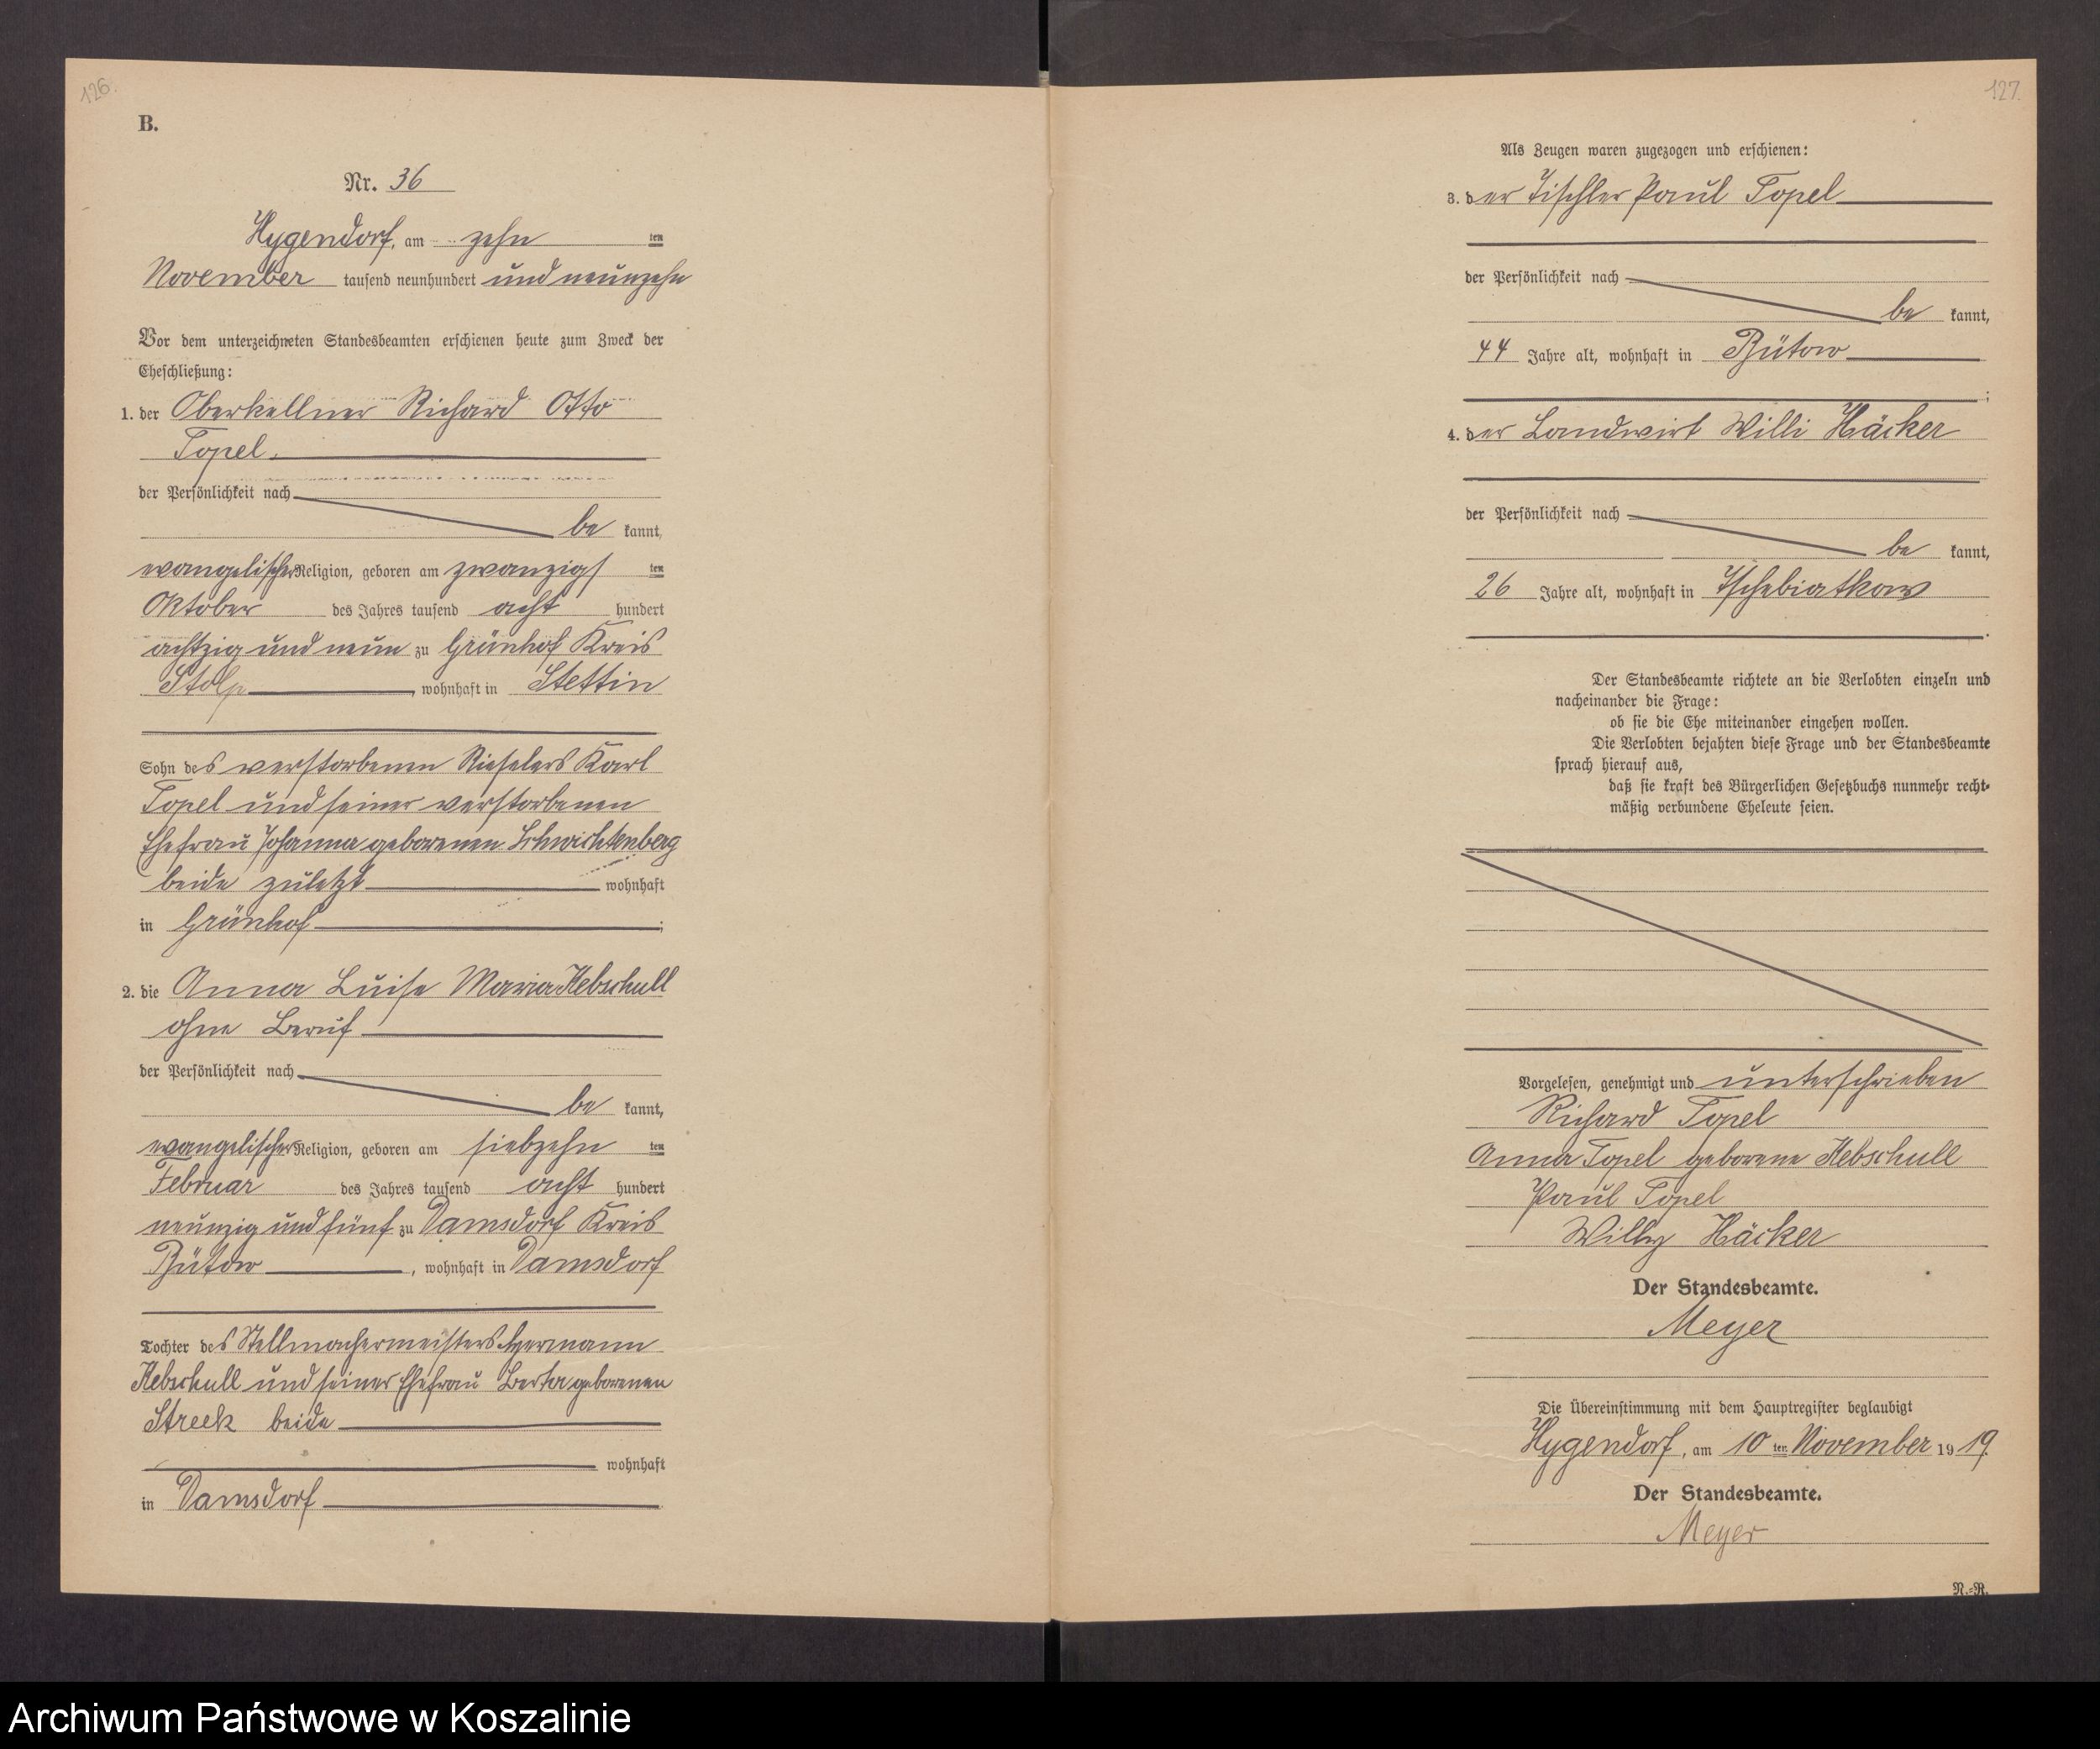 126.
B.
Nr. 36
Hygendorf, am zehn ten
November tausend neunhundert und neunzehn
Vor dem unterzeichneten Standesbeamten erschienen heute zum Zweck der
Eheschließung:
1. der Oberkellner Richard Otto
Topel.
der Persönlichkeit nach
be kannt,
evangelischer Religion, geboren am zwanzigs ten
Oktober des Jahres tausend acht hundert
achtzig und neun zu Grünhof Kreis
Stolp, wohnhaft in Stettin
Sohn des verstorbenen Rieselers Karl
Topel und seiner verstorbenen
Ehefrau Johanna geborenen Schwichtenberg
beide zuletzt wohnhaft
in Grünhof;
2. die Anna Luise Maria Kebschull
ohne Beruf
der Persönlichkeit nach
be kannt,
evangelischer Religion, geboren am siebzehn ten
Februar des Jahres tausend acht hundert
neunzig und fünf zu Damsdorf Kreis
Bütow, wohnhaft in Damsdorf
Tochter des Stellmachermeisters Hermann
Kebschull und seiner Ehefrau Berta geborenen
Streek beide
wohnhaft
in Damsdorf.
127.
Als Zeugen waren zugezogen und erschienen:
3. der Tischler Paul Topel
der Persönlichkeit nach
be kannt,
44 Jahre alt, wohnhaft in Bütow
;
4. der Landwirt Willi Häcker
der Persönlichkeit nach
be kannt,
26 Jahre alt, wohnhaft in Tschebiatkow
.
Der Standesbeamte richtete an die Verlobten einzeln und
nacheinander die Frage:
ob sie die Ehe miteinander eingehen wollen.
Die Verlobten bejahten diese Frage und der Standesbeamte
sprach hierauf aus,
daß sie kraft des Bürgerlichen Gesetzbuchs nunmehr recht-
mäßig verbundene Eheleute seien.
Vorgelesen, genehmigt und unterschrieben
Richard Topel
Anna Topel geborene Kebschull
Paul Topel
Willy Häcker
Der Standesbeamte.
Meyer
Die Übereinstimmung mit dem Hauptregister beglaubigt
Hygendorf, am 10 ten November 19 19.
Der Standesbeamte.
Meyer
N.-R.
Archiwum Państwowe w Koszalinie